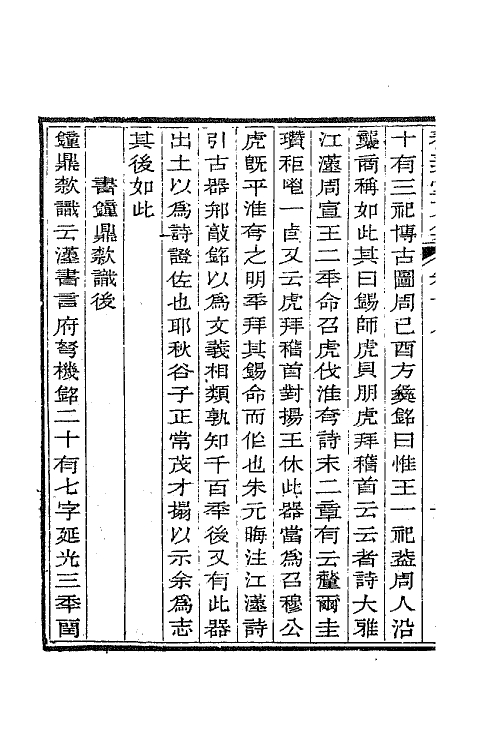 十有三祀博古圖周己酉方彝銘曰惟王一祀葢周人沿
襲商稱如此其曰錫師虎貝朋虎拜稽首云云者詩大雅
江漢周宣王二秊命召虎伐淮夸詩末二章有云釐爾圭
瓚秬鬯一卣又云虎拜稽首對揚王休此器當爲召穆公
虎旣平淮夸之明秊拜其錫命而作也朱元晦注江漢詩
引古器邢敲銘以爲文義相類孰知千百秊後又有此器
出土以爲詩證佐也耶秋谷子正常茂才搨以示余爲志
其後如此
書鐘鼎欵識後
鐘鼎欵識云漢書言府弩機銘二十有七字延光三秊閏